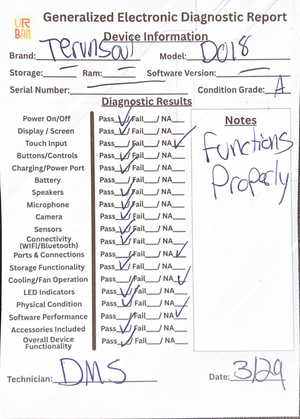 UR
BAN
Generalized Electronic Diagnostic Report
Device Information
Brand: Tervnsoul Model: D018
Storage: Ram: Software Version:
Serial Number: Condition Grade: A
Diagnostic Results
Power On/Off Pass ✓/ Fail / NA
Display / Screen Pass ✓/ Fail / NA
Touch Input Pass / Fail / NA ✓
Buttons/Controls Pass ✓/ Fail / NA
Charging/Power Port Pass ✓/ Fail / NA
Battery Pass ✓/ Fail / NA
Speakers Pass ✓/ Fail / NA
Microphone Pass ✓/ Fail / NA
Camera Pass ✓/ Fail / NA
Sensors Pass ✓/ Fail / NA
Connectivity
(WIFI/Bluetooth) Pass ✓/ Fail / NA
Ports & Connections Pass / Fail / NA ✓
Storage Functionality Pass ✓/ Fail / NA
Cooling/Fan Operation Pass / Fail / NA ✓
LED Indicators Pass ✓/ Fail / NA
Physical Condition Pass ✓/ Fail / NA
Software Performance Pass / Fail / NA ✓
Accessories Included Pass ✓/ Fail / NA
Overall Device
Functionality Pass ✓/ Fail / NA
Notes
Functions
Properly
Technician: DMS Date: 3/29